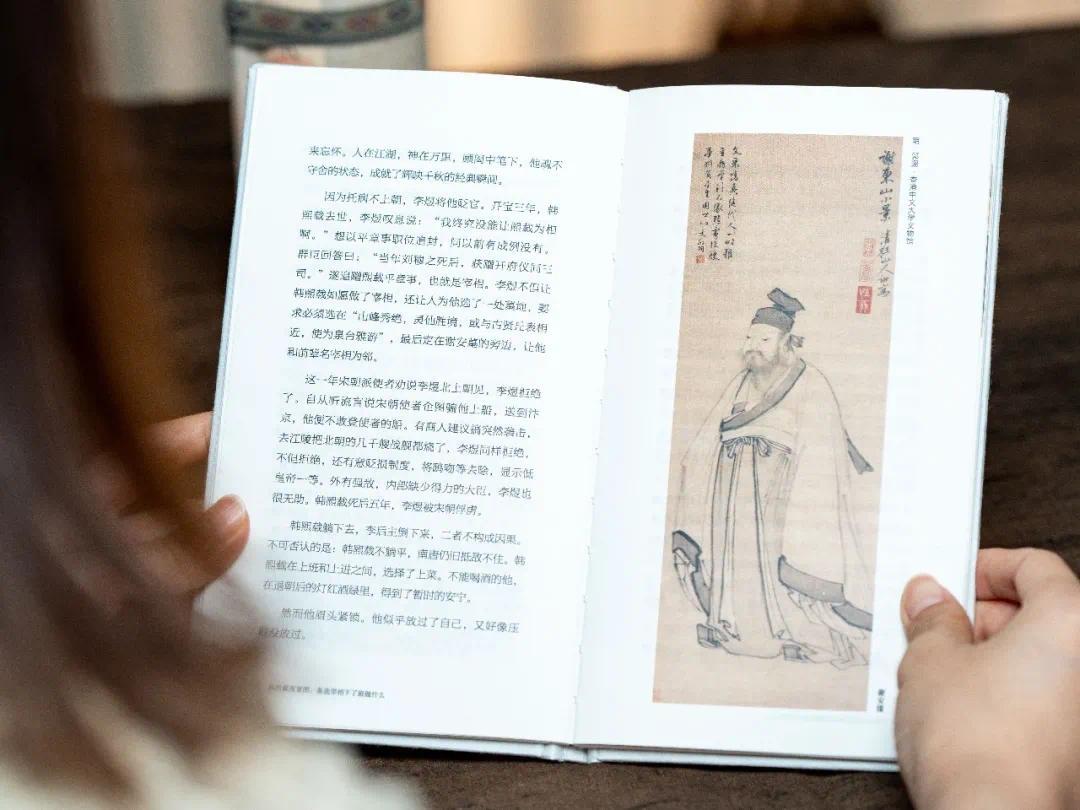 来忘怀。人在江湖，神在万里，顾闳中笔下，他魂不
守舍的状态，成就了辉映千秋的经典瞬间。
因为托病不上朝，李煜将他贬官。开宝三年，韩
熙载去世，李煜叹息说：“我终究没能让熙载为相
啊。”想以平章事职位追封，问以前有成例没有。
群臣回答曰：“当年刘穆之死后，获赠开府仪同三
司。”遂追赠熙载平章事，也就是宰相。李煜不但让
韩熙载如愿做了宰相，还让人为他选了一处墓地，要
求必须选在“山峰秀绝，灵仙胜境，或与古贤丘表相
近，使为泉台雅游”，最后定在谢安墓的旁边，让他
和前辈名宰相为邻。
这一年宋朝派使者劝说李煜北上朝见，李煜拒绝
了。自从听流言说宋朝使者企图骗他上船，送到汴
京，他便不敢登使者的船。有商人建议搞突然袭击，
去江陵把北朝的几千艘战舰都烧了，李煜同样拒绝，
不但拒绝，还有意贬损制度，将鸱吻等去除，显示低
皇帝一等。外有强敌，内部缺少得力的大臣，李煜也
很无助。韩熙载死后五年，李煜被宋朝俘虏。
韩熙载躺下去，李后主倒下来，二者不构成因果。
不可否认的是：韩熙载不躺平，南唐仍旧抵敌不住。韩
熙载在上班和上进之间，选择了上菜。不能喝酒的他，
在退朝后的灯红酒绿里，得到了暂时的安宁。
然而他眉头紧锁。他似乎放过了自己，又好像压
放过。
谢东山小景
香港中文大学文物馆